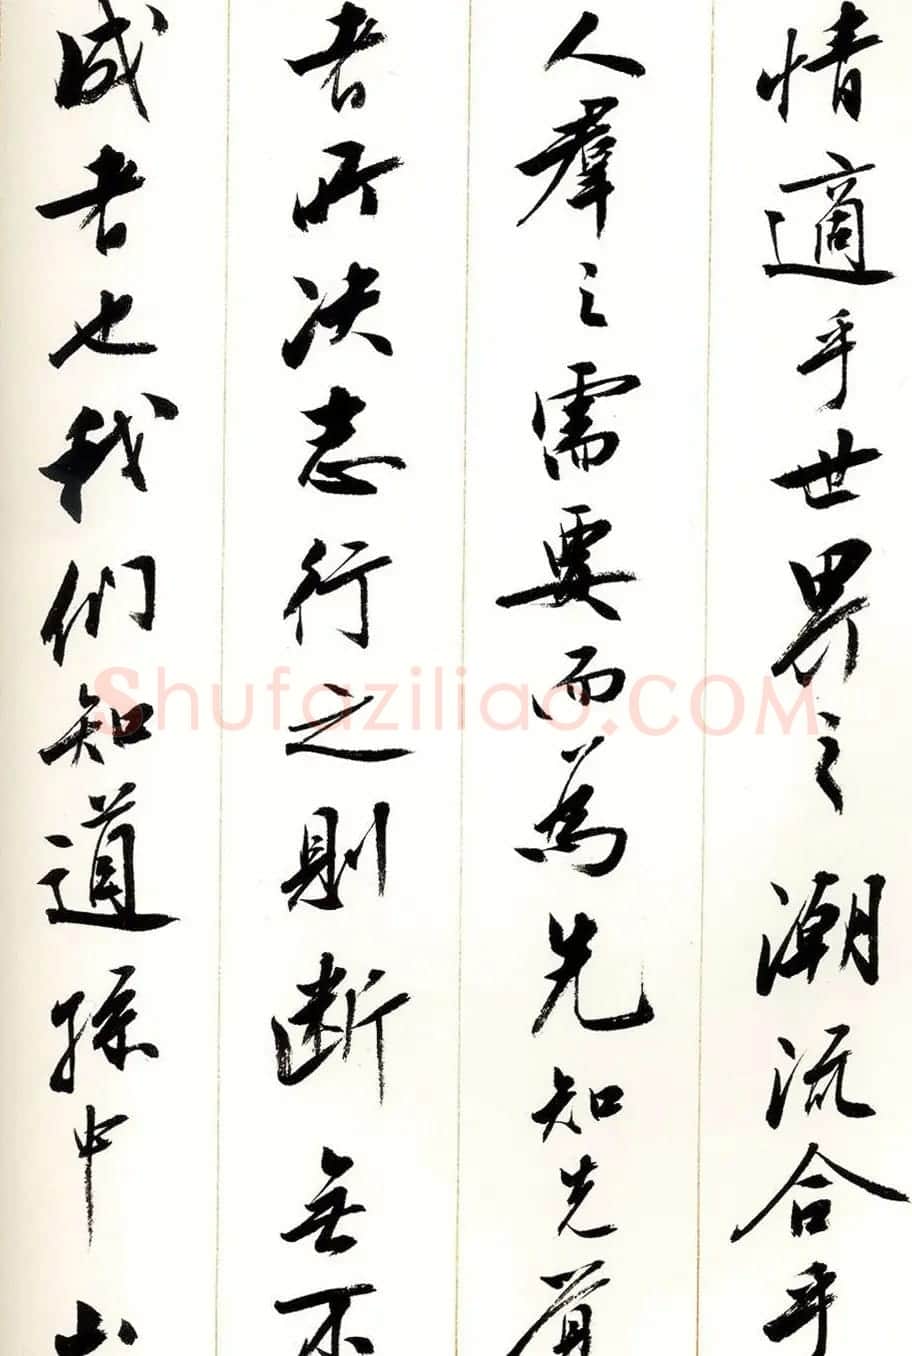 情適乎世界之潮流合乎
人羣之需要而為先知先覺
者所决志行之則断無不
成者也我们知道孫中山
Shufaziliao.COM